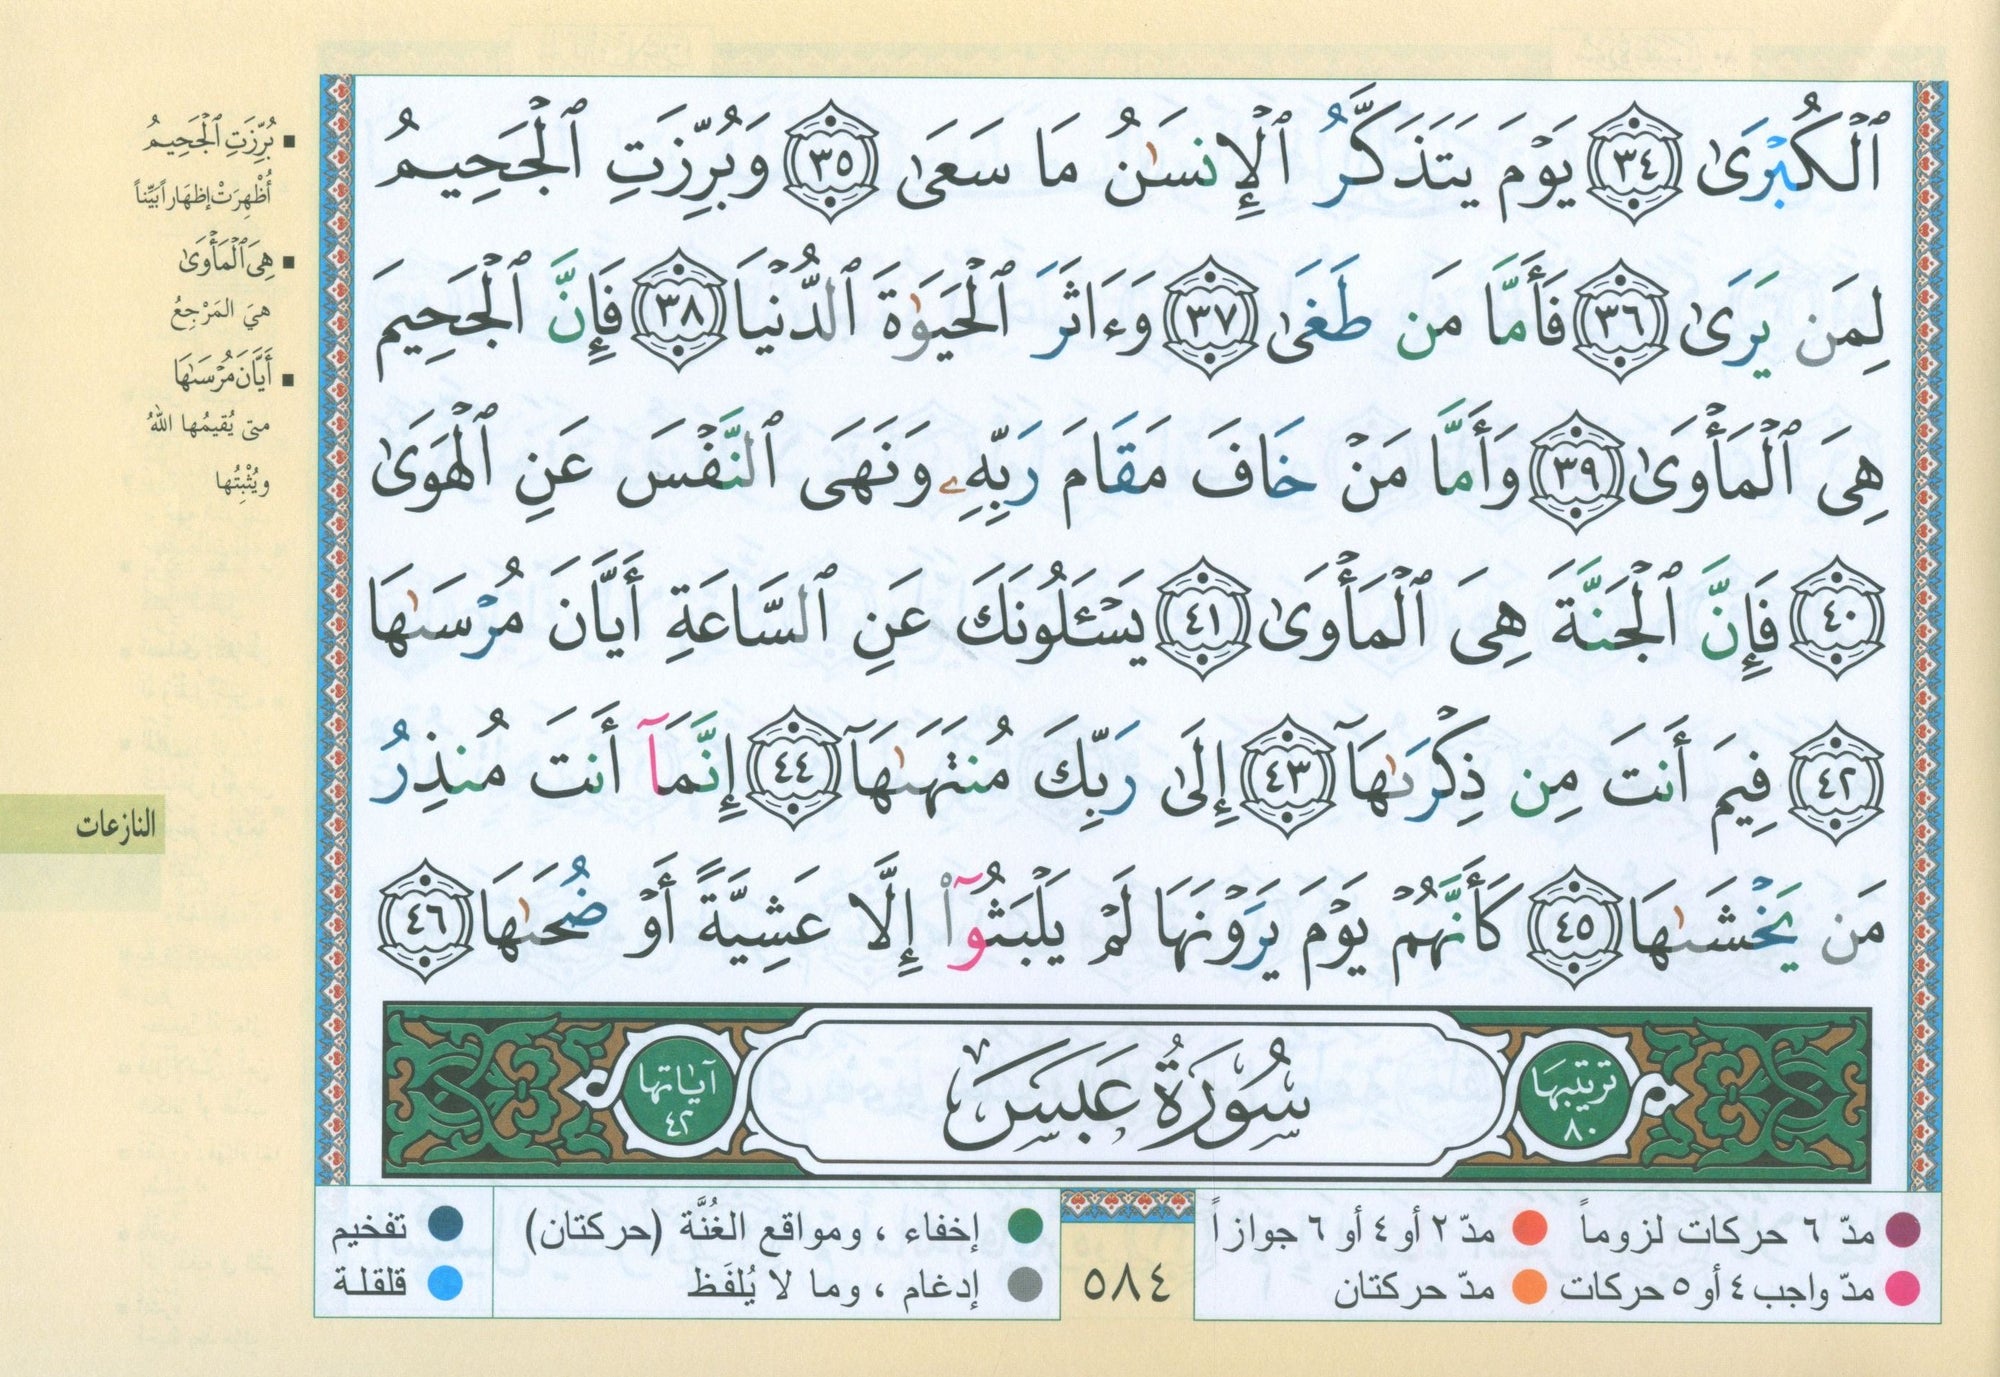 ٱلْكُبْرَىٰ ٣٤ يَوْمَ يَتَذَكَّرُ ٱلْإِنسَٰنُ مَا سَعَىٰ ٣٥ وَبُرِّزَتِ ٱلْجَحِيمُ
لِمَن يَرَىٰ ٣٦ فَأَمَّا مَن طَغَىٰ ٣٧ وَءَاثَرَ ٱلْحَيَوٰةَ ٱلدُّنْيَا ٣٨ فَإِنَّ ٱلْجَحِيمَ
هِىَ ٱلْمَأْوَىٰ ٣٩ وَأَمَّا مَنْ خَافَ مَقَامَ رَبِّهِۦ وَنَهَى ٱلنَّفْسَ عَنِ ٱلْهَوَىٰ
٤٠ فَإِنَّ ٱلْجَنَّةَ هِىَ ٱلْمَأْوَىٰ ٤١ يَسْـَٔلُونَكَ عَنِ ٱلسَّاعَةِ أَيَّانَ مُرْسَىٰهَا
٤٢ فِيمَ أَنتَ مِن ذِكْرَىٰهَآ ٤٣ إِلَىٰ رَبِّكَ مُنتَهَىٰهَآ ٤٤ إِنَّمَآ أَنتَ مُنذِرُ
مَن يَخْشَىٰهَا ٤٥ كَأَنَّهُمْ يَوْمَ يَرَوْنَهَا لَمْ يَلْبَثُوٓا۟ إِلَّا عَشِيَّةً أَوْ ضُحَىٰهَا ٤٦
ترتيبها ٨٠
سُورَةُ عَبَسَ
آياتها ٤٢
■ بُرِّزَتِ ٱلْجَحِيمُ
أُظْهِرَتْ إظهَاراً بَيِّناً
■ هِىَ ٱلْمَأْوَىٰ
هيَ المَرْجِعُ
■ أَيَّانَ مُرْسَىٰهَا
متى يُقيمُها اللهُ
ويُثْبِتُها
النازعات
مدّ ٦ حركات لزوماً
مدّ ٢ أو ٤ أو ٦ جوازاً
مدّ واجب ٤ أو ٥ حركات
مدّ حركتان
٥٨٤
إخفاء ، ومواقع الغُنَّة (حركتان)
إدغام ، وما لا يُلفَظ
تفخيم
قلقلة